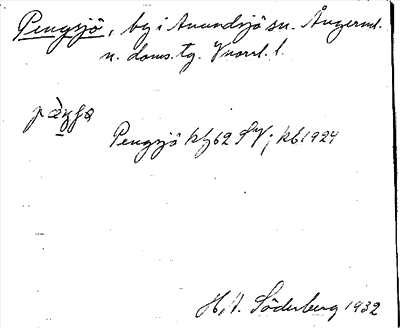 Pengsjö, by i Anundsjö sn. Ångerml.
n. doms. tg. Vnorrl. l.
Pengsjö kfz 62 SV; kb 1924
H. Söderberg 1932